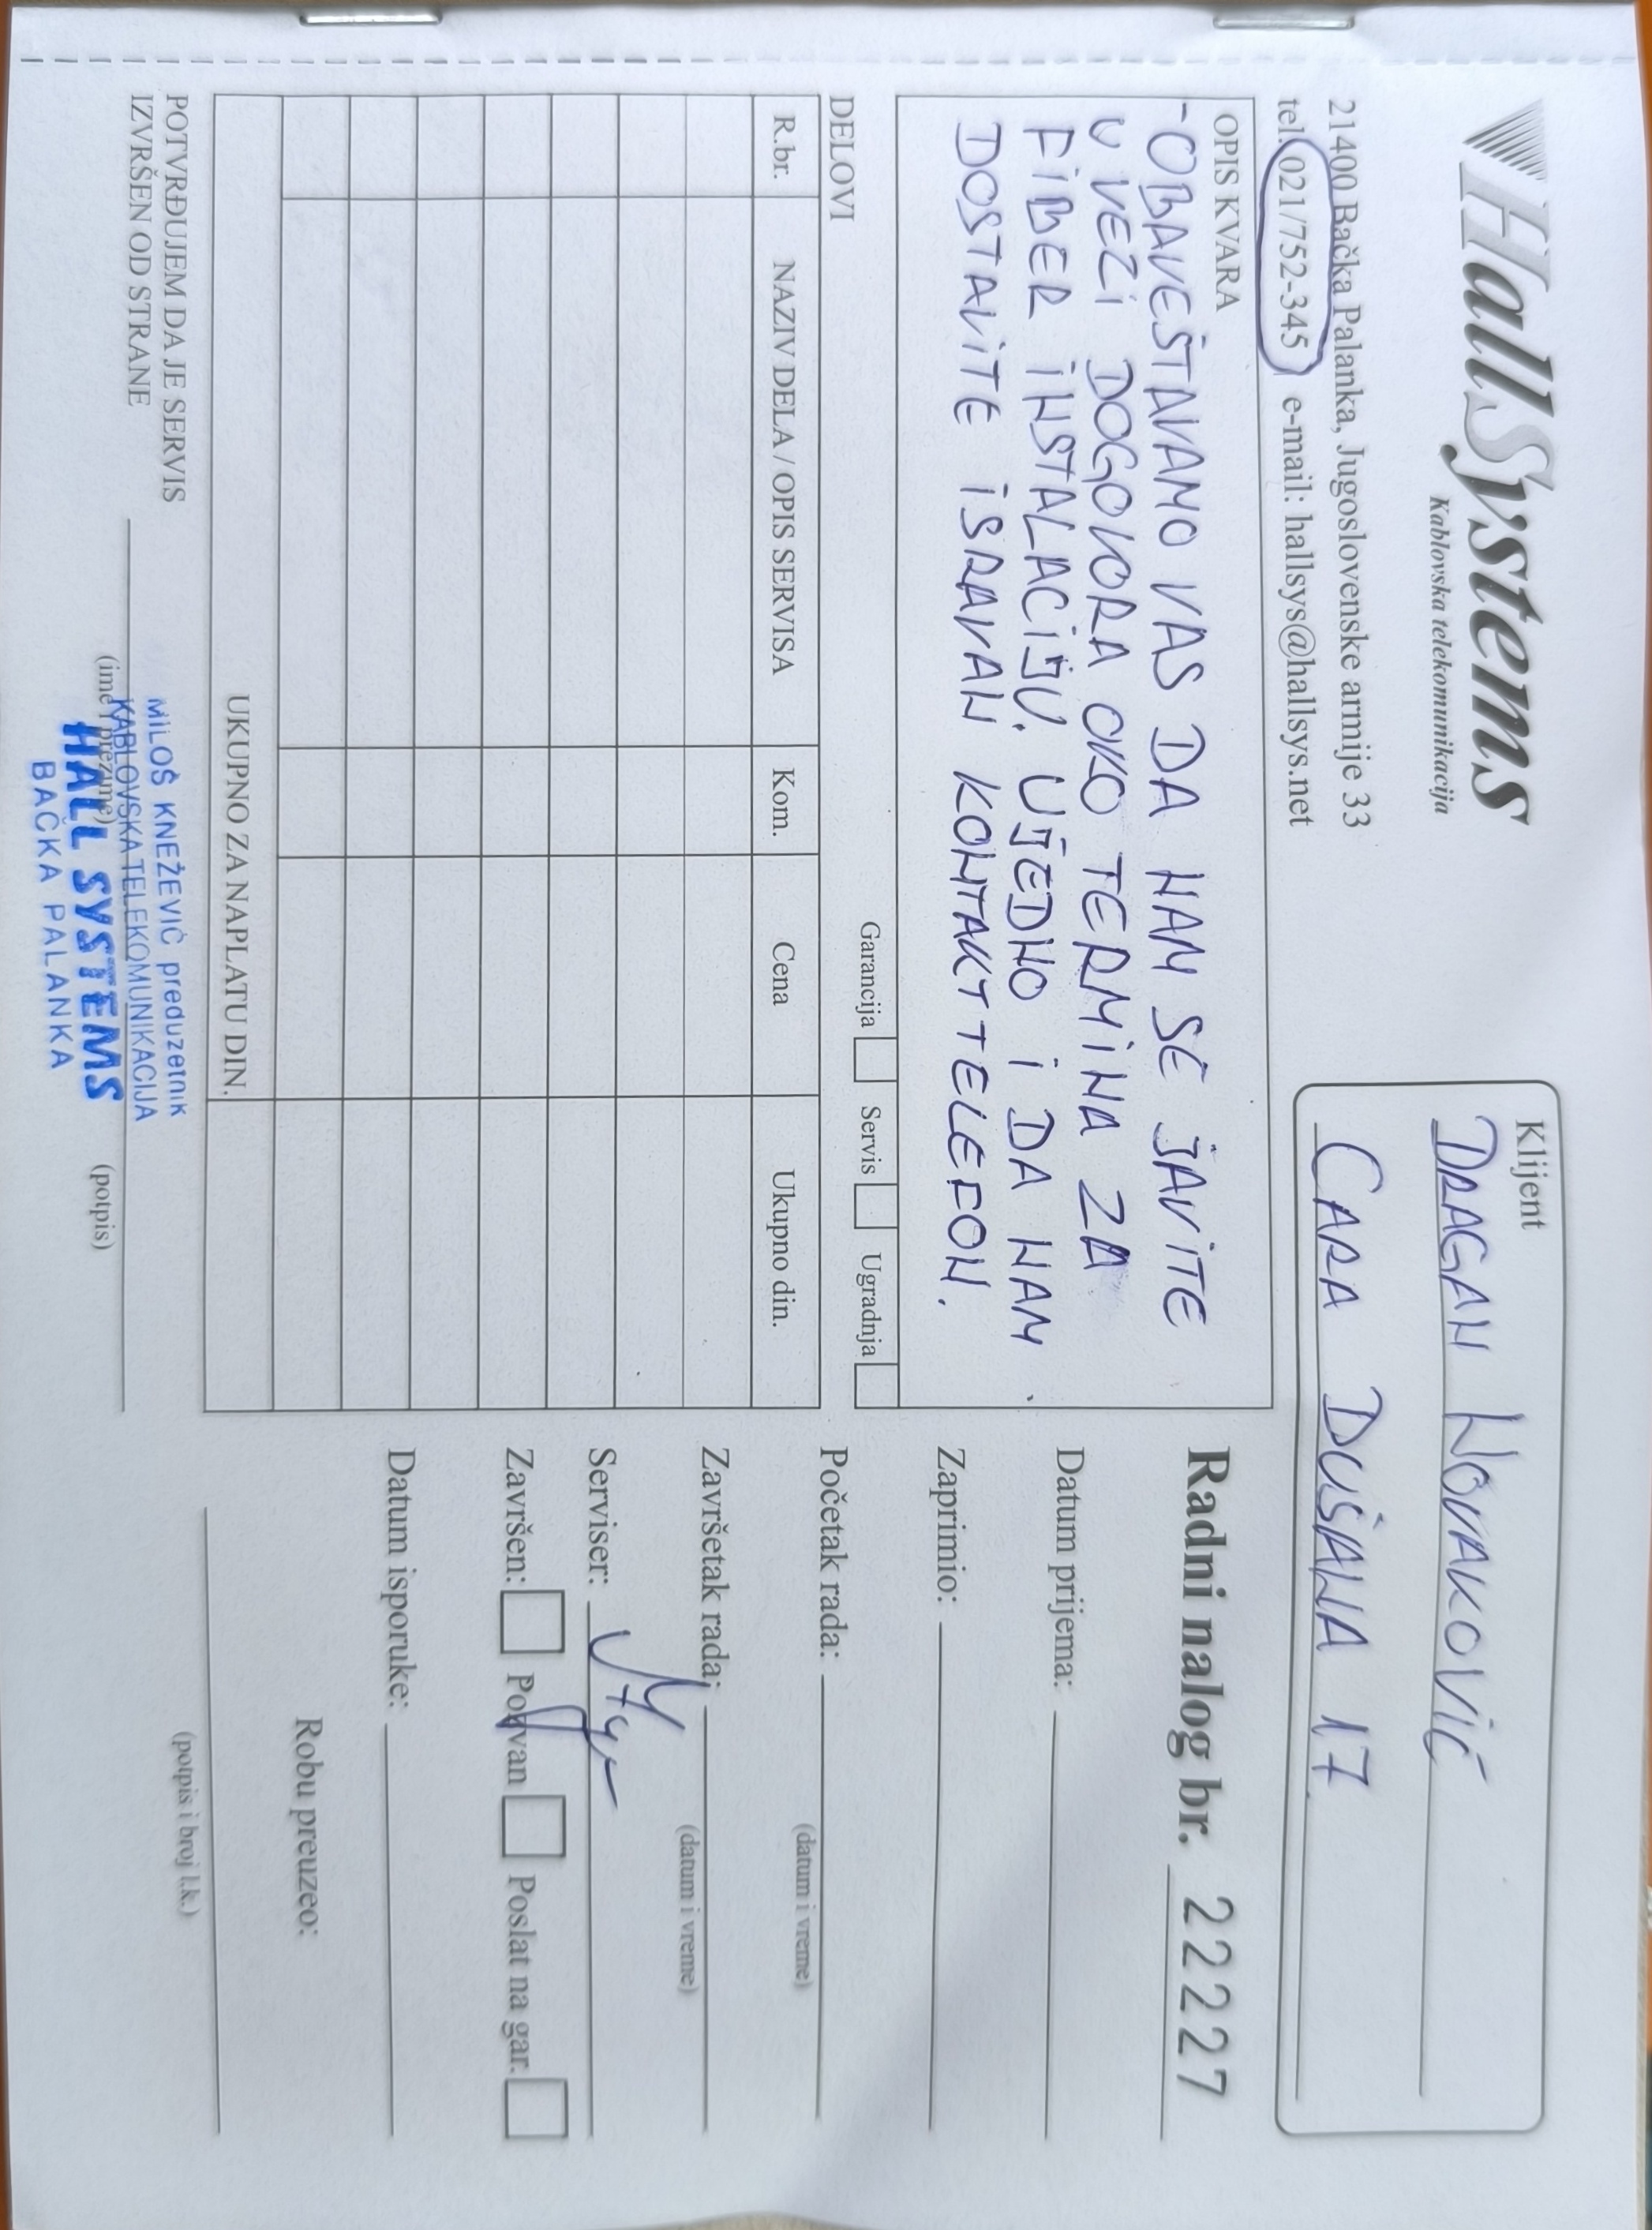 HallSystems
Kablovska telekomunikacija
21400 Bačka Palanka, Jugoslovenske armije 33
tel. 021/752-345 e-mail: hallsys@hallsys.net
Klijent
DRAGAN NOVAKOVIĆ
CARA DUŠANA 17
OPIS KVARA
-OBAVEŠTAVAMO VAS DA NAM SE JAVITE
U VEZI DOGOVORA OKO TERMINA ZA
FIBER INSTALACIJU. UJEDNO I DA NAM
DOSTAVITE ISRAVAN KONTAKT TELEFON.
Garancija Servis Ugradnja
DELOVI
R.br. NAZIV DELA / OPIS SERVISA Kom. Cena Ukupno din.
UKUPNO ZA NAPLATU DIN.
POTVRĐUJEM DA JE SERVIS
IZVRŠEN OD STRANE
(ime i prezime) (potpis)
MILOŠ KNEŽEVIĆ preduzetnik
KABLOVSKA TELEKOMUNIKACIJA
HALL SYSTEMS
BAČKA PALANKA
Radni nalog br. 22227
Datum prijema:
Zaprimio:
Početak rada:
(datum i vreme)
Završetak rada:
(datum i vreme)
Serviser:
Završen: Pozvan Poslat na gar.
Datum isporuke:
Robu preuzeo:
(potpis i broj l.k.)